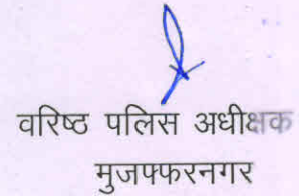 वरिष्ठ पलिस अधीक्षक
मुजफ्फरनगर